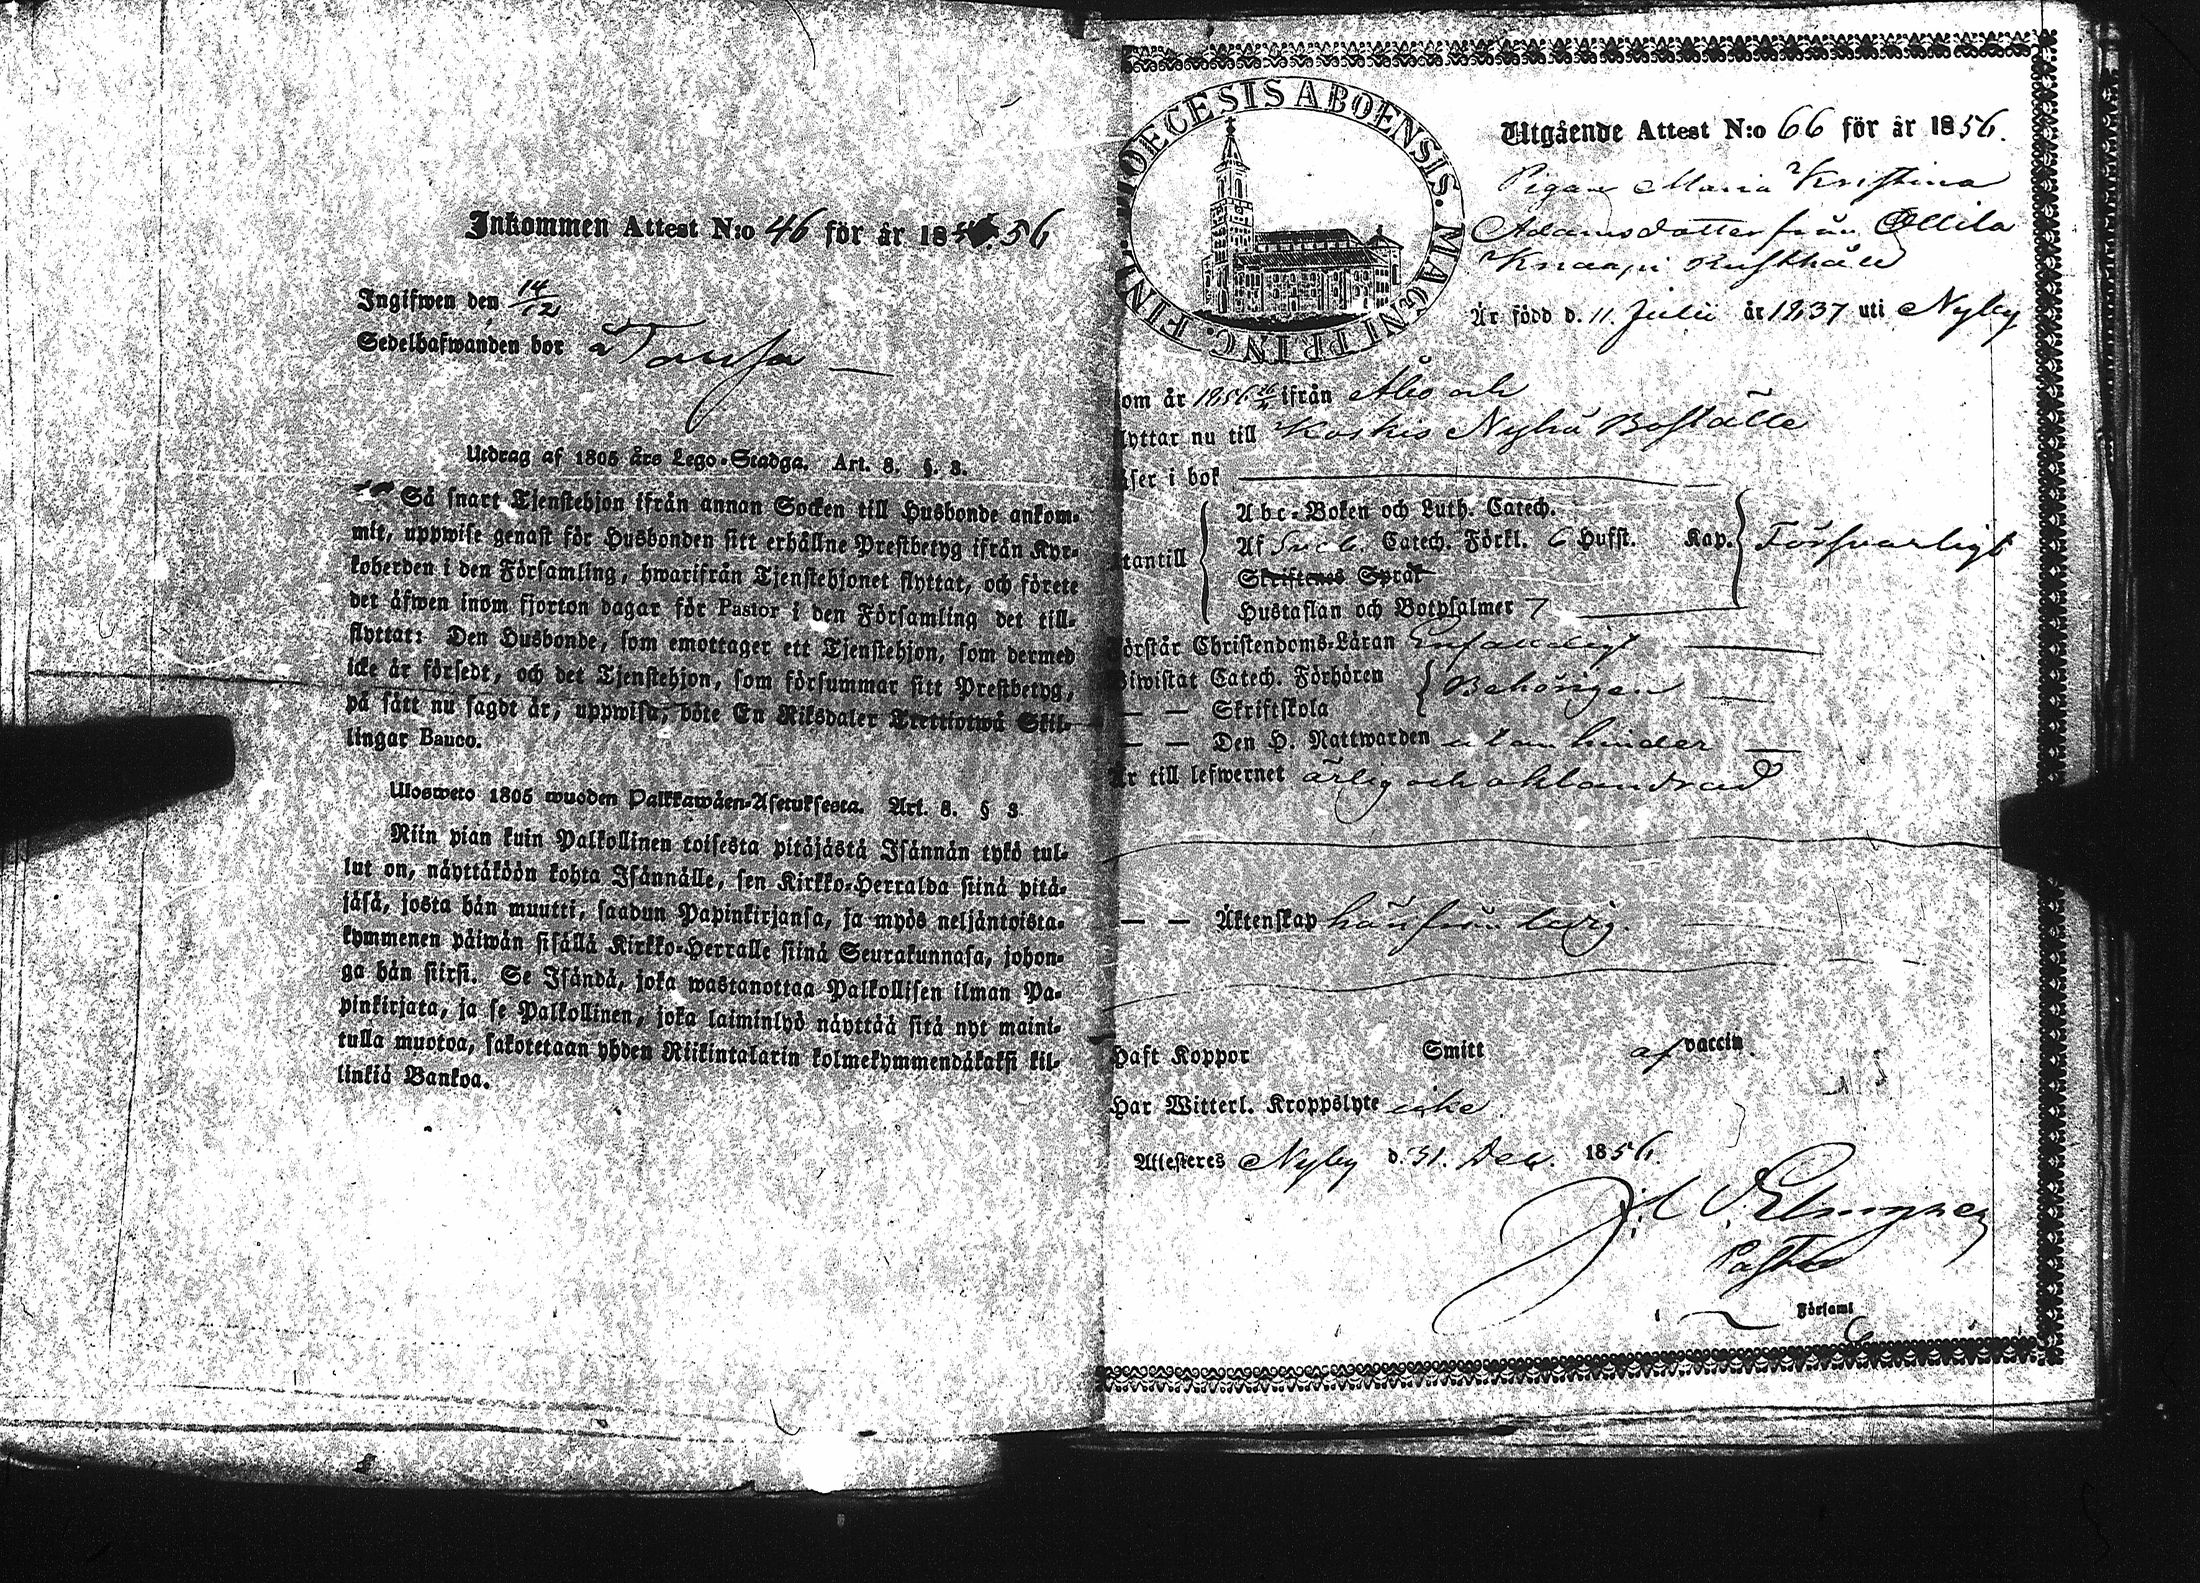 Inkommen Attest N:o 46 för år 18 56
Ingifwen den 14/12
Sedelhafwanden bor
Utdrag af 1805 års Lego-Stadga. Art. 8. §. 3.
Så snart Tjenstehjon ifrån annan Socken till Husbonde ankom-
mit, uppwise genast för Husbonden sitt erhållne Prestbetyg ifrån Kyr-
koherden i den Församling, hwarifrån Tjenstehjonet flyttat, och förete
det äfwen inom fjorton dagar för Pastor i den Församling det till-
flyttat: Den Husbonde, som emottager ett Tjenstehjon, som dermed
icke är försedt, och det Tjenstehjon, som försummar sitt Prestbetyg,
på sätt nu sagdt är, uppwisa, böte En Riksdaler Trettiotwå Skil-
lingar Banco.
Ulosweto 1805 wuoden Palkkawäen-Asetuksesta. Art. 8. § 3.
Niin pian kuin Palkollinen toisesta pitäjästä Isännän tykö tul-
lut on, näyttäköön kohta Isännälle, sen Kirkko-Herralda siinä pitä-
jäsä, josta hän muutti, saadun Papinkirjansa, ja myös neljäntoista-
kymmenen päiwän sisällä Kirkko-Herralle siinä Seurakunnasa, johon-
ga hän siirsi. Se Isändä, joka wastanottaa Palkollisen ilman Pa-
pinkirjata, ja se Palkollinen, joka laiminlyö näyttää sitä nyt maini-
tulla muotoa, sakotetaan yhden Riikintalarin kolmekymmendäkaksi kil-
linkiä Bankoa.
DIOECESIS ABOENSIS. MAGNI PRINC. FINL.
Utgående Attest N:o 66 för år 1856.
Pigan Maria Kristina
Adamsdotter från Ollila
Knaapi Rusthåll
Är född d. 11. Julii år 1837 uti Nyby
om år 1856 ifrån Åbo och
lyttar nu till Koskis Nyby Boställe
äser i bok
tantill
Abc-Boken och Luth. Catech.
Af Sveb. Catech. Förkl. 6 Hufst. Kap. Försvarligt
Skriftenes Språk
Hustaflan och Botpsalmer 7
örstår Christendoms-Läran Enfaldigt
iwistat Catech. Förhören Behörigen
— — Skriftskola
— — Den H. Nattwarden utan hinder
r till lefwernet ärlig och oklandrad
— — Äktenskap härifrån ledig.
Haft Koppor Smitt af vaccin.
Har Witterl. Kroppslyte icke.
Attesteres Nyby d. 31. Dec. 1856.
Pastor
i Församl